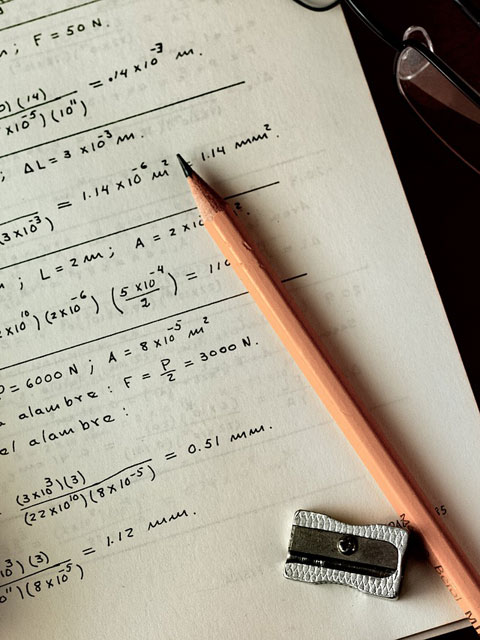 ; F = 50 N.
) (14) / x 10⁻⁵) (10¹¹) = .14 x 10⁻³ m.
; ΔL = 3 x 10⁻³ m.
(3 x 10⁻³) = 1.14 x 10⁻⁶ m² 1.14 mm².
; L = 2 m ; A = 2 x 10
x 10¹⁰) (2 x 10⁻⁶) (5 x 10⁻⁴ / 2) = 11
= 6000 N ; A = 8 x 10⁻⁵ m²
alambre : F = P/2 = 3000 N.
el alambre :
(3 x 10³) (3) / (22 x 10¹⁰) (8 x 10⁻⁵) = 0.51 mm.
10³) (3) / ) (8 x 10⁻⁵) = 1.12 mm.